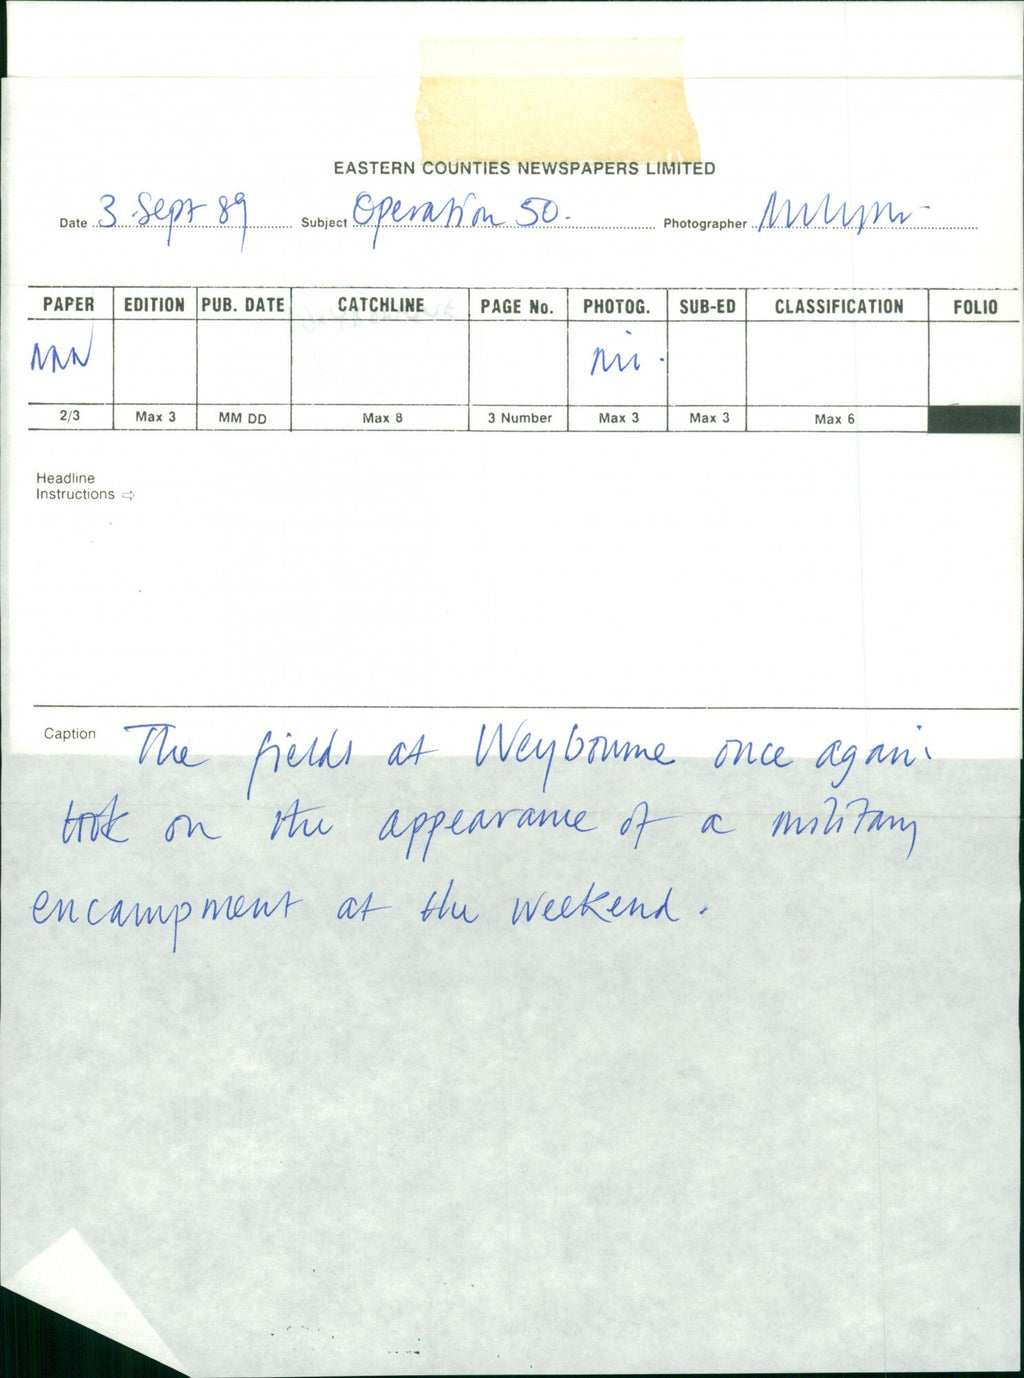 EASTERN COUNTIES NEWSPAPERS LIMITED
Date 3 Sept 89 Subject Operation 50. Photographer
PAPER EDITION PUB. DATE CATCHLINE PAGE No. PHOTOG. SUB-ED CLASSIFICATION FOLIO
NNN
2/3 Max 3 MM DD Max 8 3 Number Max 3 Max 3 Max 6
Headline
Instructions ⇨
Caption The fields at Weybourne once again
took on the appearance of a military
encampment at the weekend.